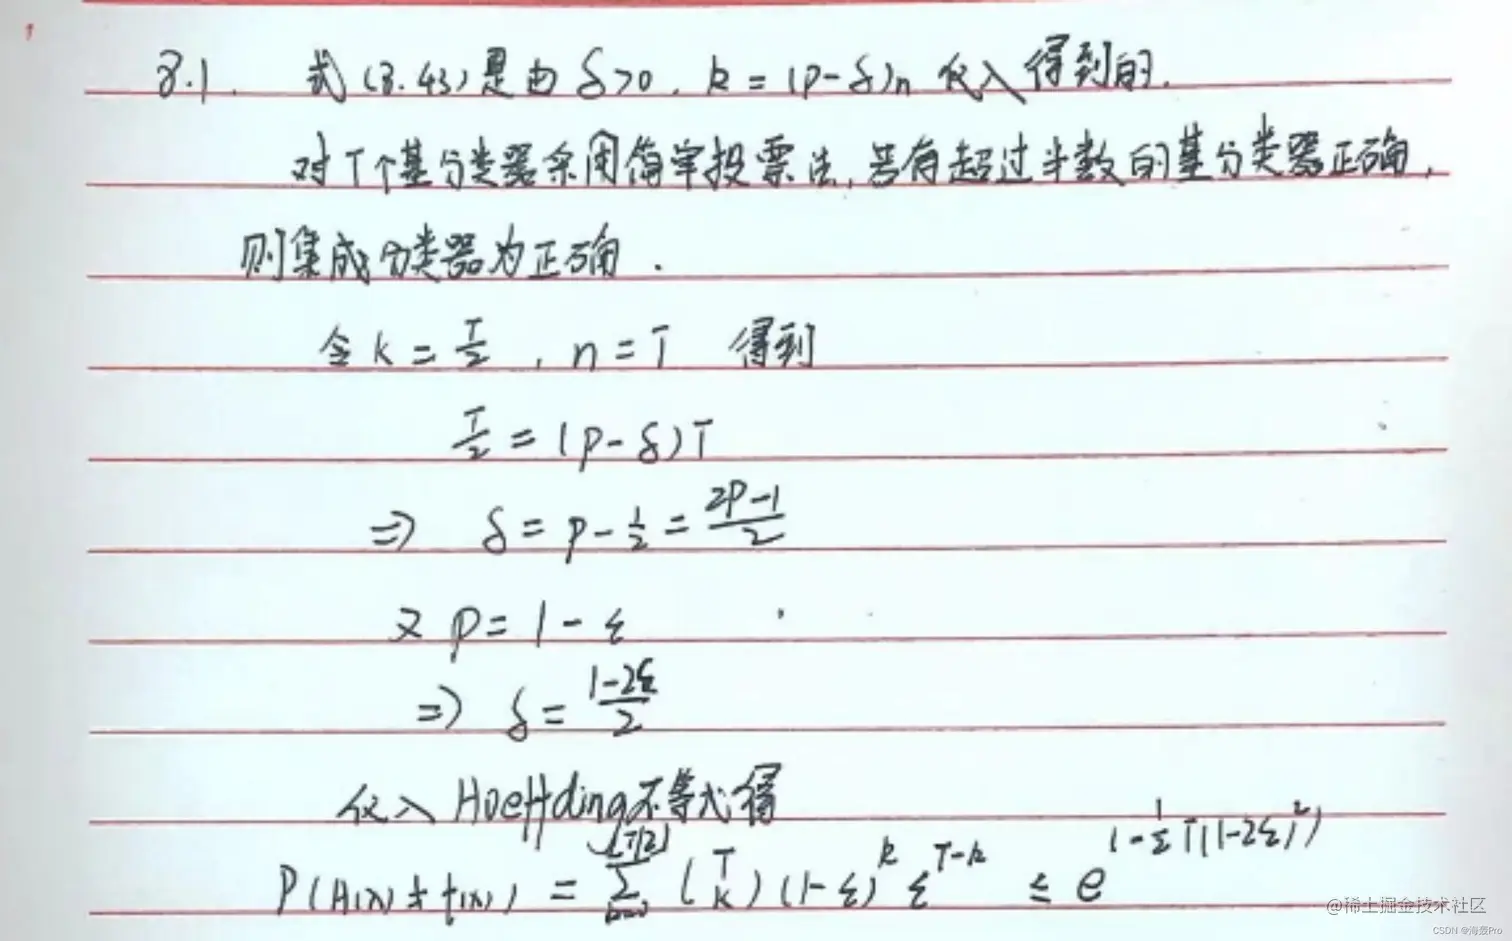 8.1. 式(8.43)是由 δ>0, k=(p-δ)n 代入得到的.
对T个基分类器采用简单投票法, 若有超过半数的基分类器正确,
则集成分类器为正确.
令 k = T/2 , n = T 得到
T/2 = (p-δ)T
⇒ δ = p - 1/2 = (2p-1)/2
又 p = 1 - ε
⇒ δ = (1-2ε)/2
代入 Hoeffding不等式得
P(H(x)≠f(x)) = ∑_{k=0}^{⌊T/2⌋} (T k) (1-ε)^k ε^{T-k} ≤ e^{(-1/2 T(1-2ε)^2)}
@稀土掘金技术社区
CSDN @海轰Pro